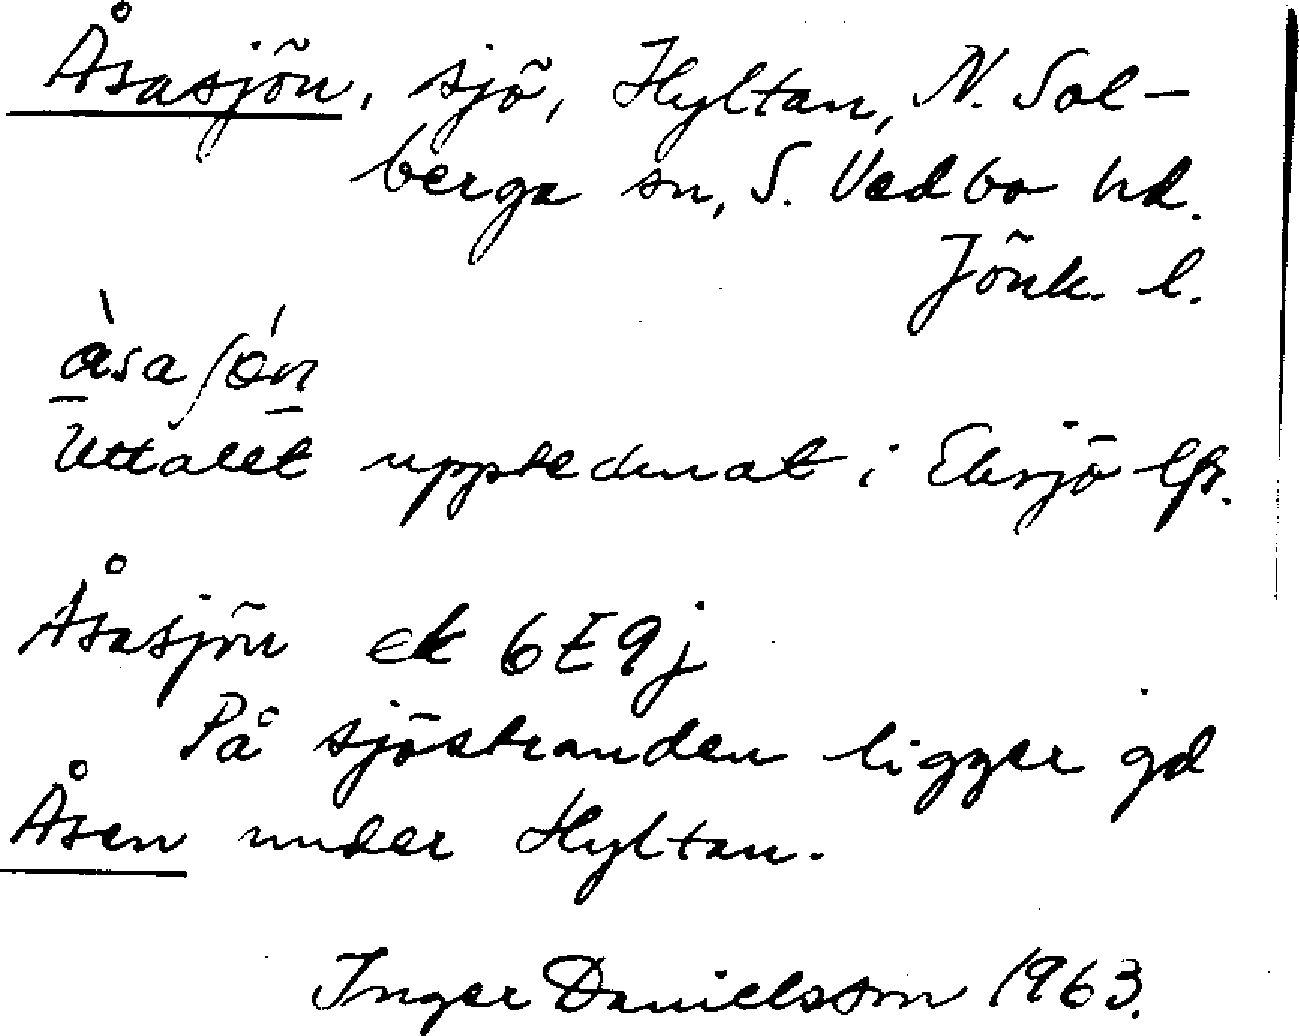 Åsasjön, sjö, Hyltan, N. Sol-
berga sn, S. Vedbo hd.
Jönk. l.
Uttalet upptecknat i Eksjö lfs.
Åsasjön ek 6E9j
På sjöstranden ligger gd
Åsen under Hyltan.
Inger Danielsson 1963.